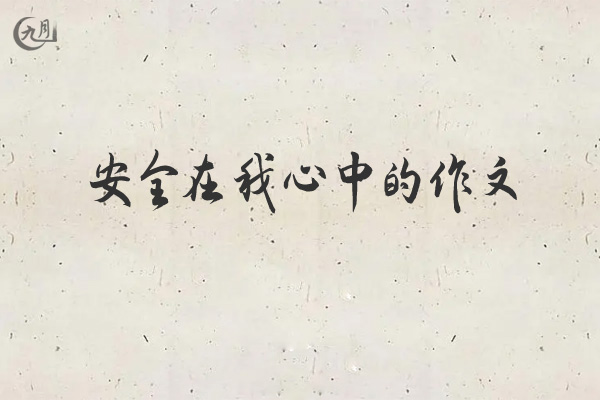 九月
安全在我心中的作文